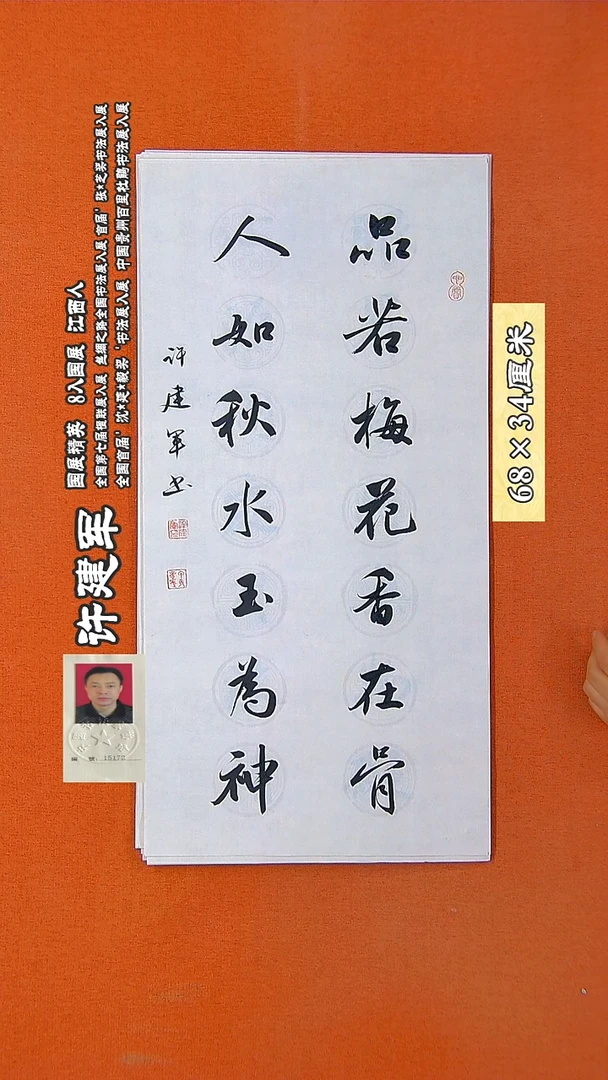 品若梅花香在骨
人如秋水玉為神
许建军书
68×34厘米
许建军
国展精英 8入国展 江西人
全国第七届楹联展入展 丝绸之路全国书法展入展 首届'张★芝奖书法展入展
全国首届'沈★延★毅奖'书法展入展 中国贵州百里杜鹃书法展入展
编 号: 15172